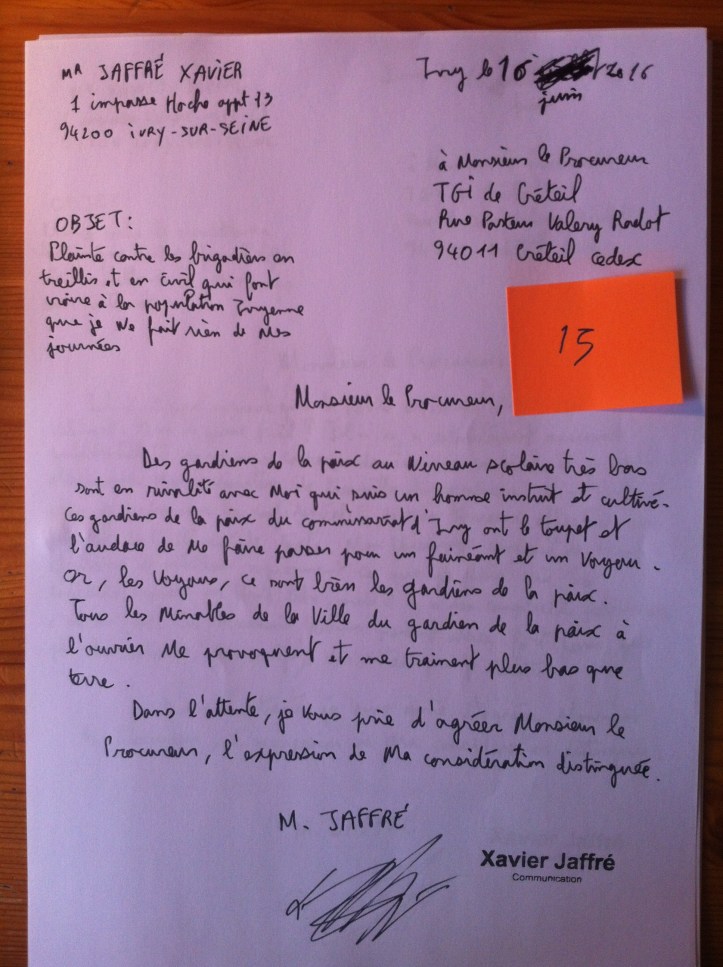 MR JAFFRÉ XAVIER
1 impasse Hoche appt 13
94200 IVRY-SUR-SEINE
Ivry le 16 2016
juin
à Monsieur le Procureur
TGI de Créteil
Rue Pasteur Valery Radot
94011 Créteil cedex
OBJET:
Plainte contre les brigadiers en
treillis et en civil qui font
croire à la population Ivryenne
que je Ne fait rien de Mes
journées
15
Monsieur le Procureur,
Des gardiens de la paix au Niveau scolaire très bas
sont en rivalité avec Moi qui suis un homme instruit et cultivé.
Ces gardiens de la paix du commissariat d'Ivry ont le toupet et
l'audace de Me faire passer pour un fainéant et un Voyou.
Or, les Voyous, ce sont bien les gardiens de la paix.
Tous les Minables de la Ville du gardien de la paix à
l'ouvrier Me provoquent et me traiment plus bas que
terre.
Dans l'attente, je Vous prie d'agréer Monsieur le
Procureur, l'expression de Ma considération distinguée.
M. JAFFRÉ
Xavier Jaffré
Communication